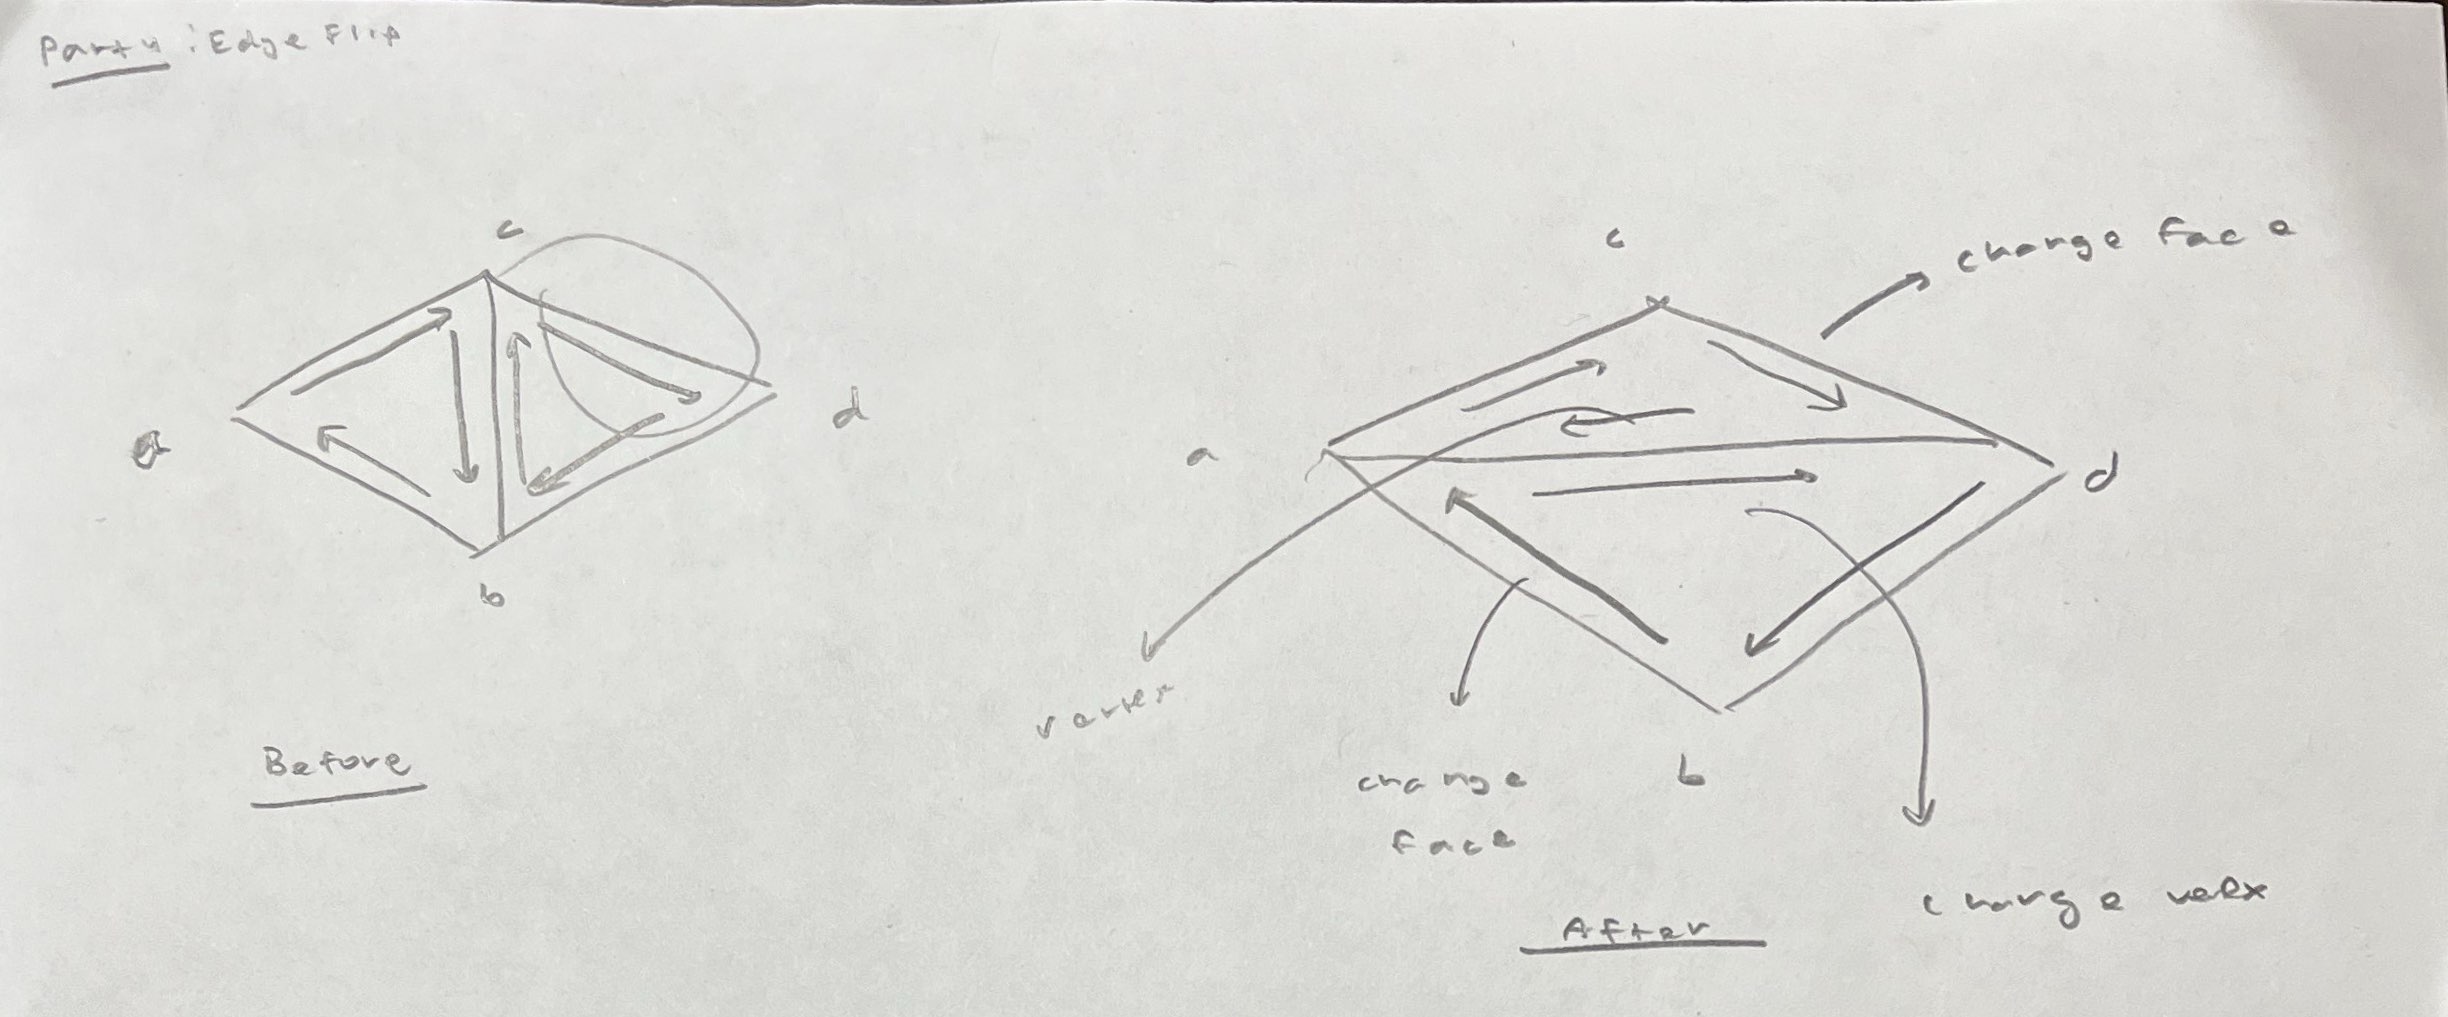 Part 4 : Edge Flip
c
a
d
b
Before
c
change face
a
d
vertex
change
face
b
change
After